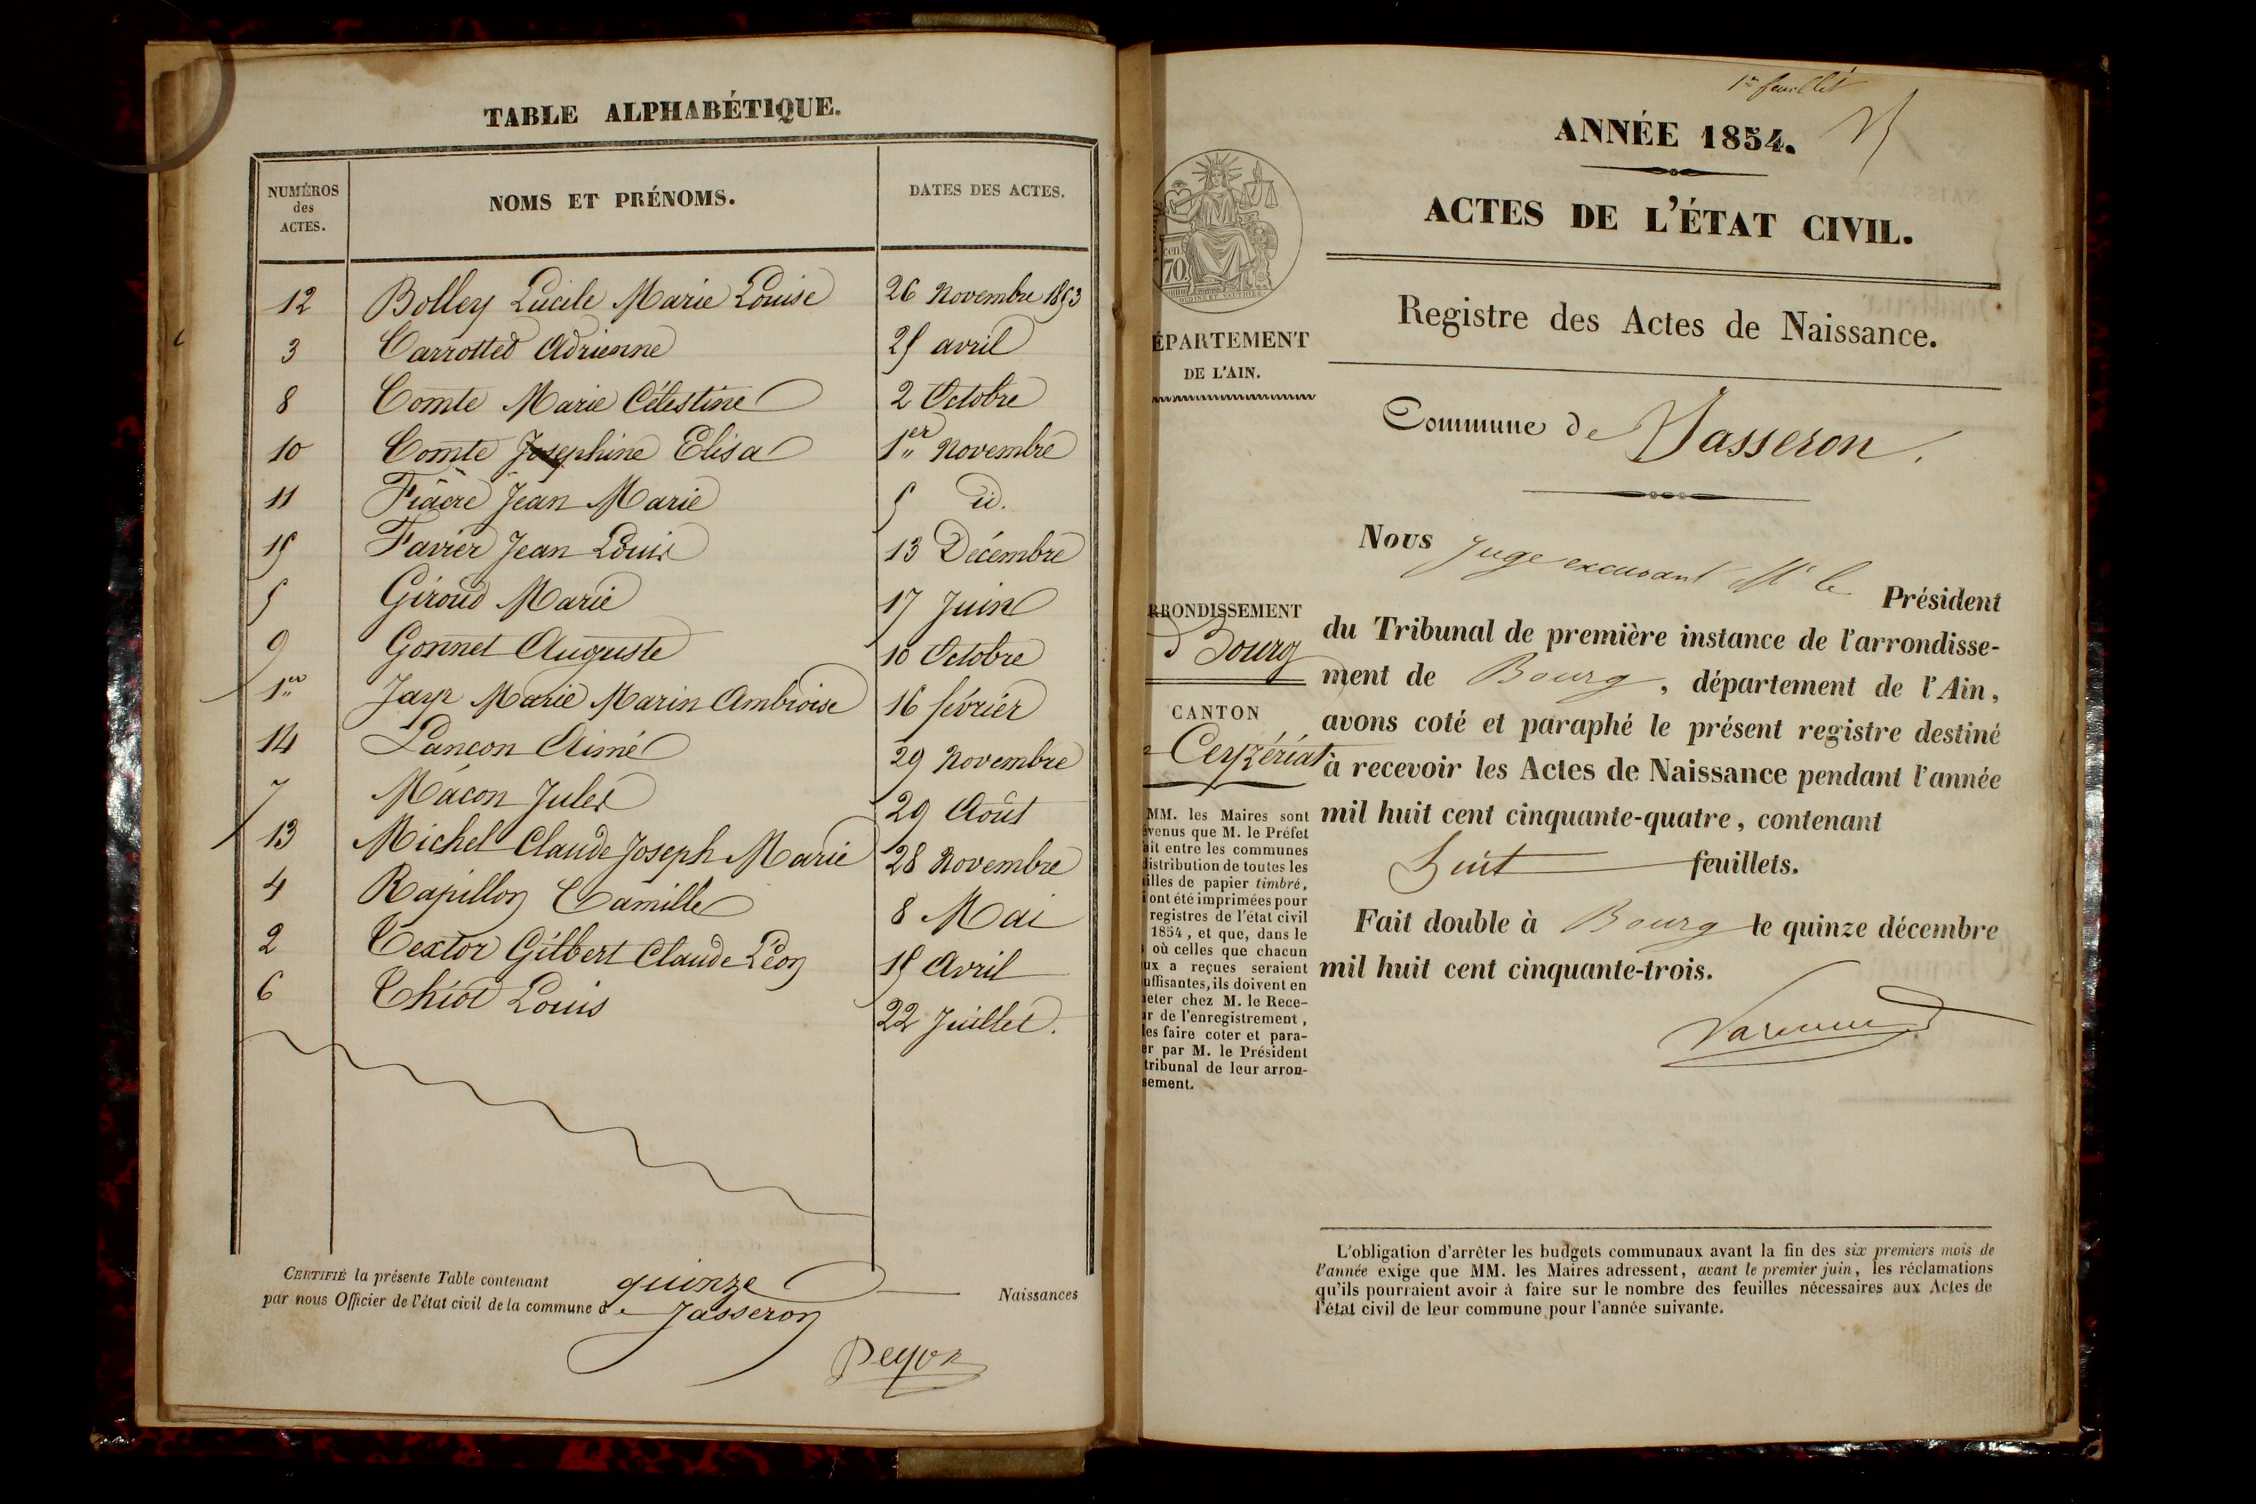 TABLE ALPHABÉTIQUE.
NUMÉROS des ACTES.
NOMS ET PRÉNOMS.
DATES DES ACTES.
12 Bolley Lucile Marie Louise 26 Novembre 1853
3 Carrotted Adrienne 25 avril
8 Comte Marie Célestine 2 Octobre
10 Comte Josephine Elisa 1er Novembre
11 Fiacre Jean Marie 5 id.
15 Favier Jean Louis 13 Décembre
5 Giroud Marie 17 Juin
9 Gonnet Auguste 10 Octobre
1er Jayr Marie Marin Ambroise 16 février
14 Lancon Aimé 29 Novembre
7 Mácon Jules 29 Août
13 Michel Claude Joseph Marie 28 Novembre
4 Rapillon Camille 8 Mai
2 Textor Gilbert Claude Léon 15 Avril
6 Thiot Louis 22 Juillet.
CERTIFIÉ la présente Table contenant quinze Naissances
par nous Officier de l'état civil de la commune de Jasseron
1er feuillet
ANNÉE 1854.
ACTES DE L'ÉTAT CIVIL.
Registre des Actes de Naissance.
cent
70
ÉPARTEMENT
DE L'AIN.
Commune de Jasseron.
Nous Juge excusant Mr le Président
du Tribunal de première instance de l'arrondisse-
ment de Bourg, département de l'Ain,
avons coté et paraphé le présent registre destiné
à recevoir les Actes de Naissance pendant l'année
mil huit cent cinquante-quatre, contenant
huit feuillets.
Fait double à Bourg le quinze décembre
mil huit cent cinquante-trois.
RRONDISSEMENT
d Bourg
CANTON
Ceyzériat
MM. les Maires sont
venus que M. le Préfet
ait entre les communes
distribution de toutes les
illes de papier timbré,
ont été imprimées pour
registres de l'état civil
1854, et que, dans le
où celles que chacun
ux a reçues seraient
uffisantes, ils doivent en
eter chez M. le Rece-
r de l'enregistrement,
les faire coter et para-
er par M. le Président
tribunal de leur arron-
sement.
L'obligation d'arrêter les budgets communaux avant la fin des six premiers mois de
l'année exige que MM. les Maires adressent, avant le premier juin, les réclamations
qu'ils pourraient avoir à faire sur le nombre des feuilles nécessaires aux Actes de
l'état civil de leur commune pour l'année suivante.